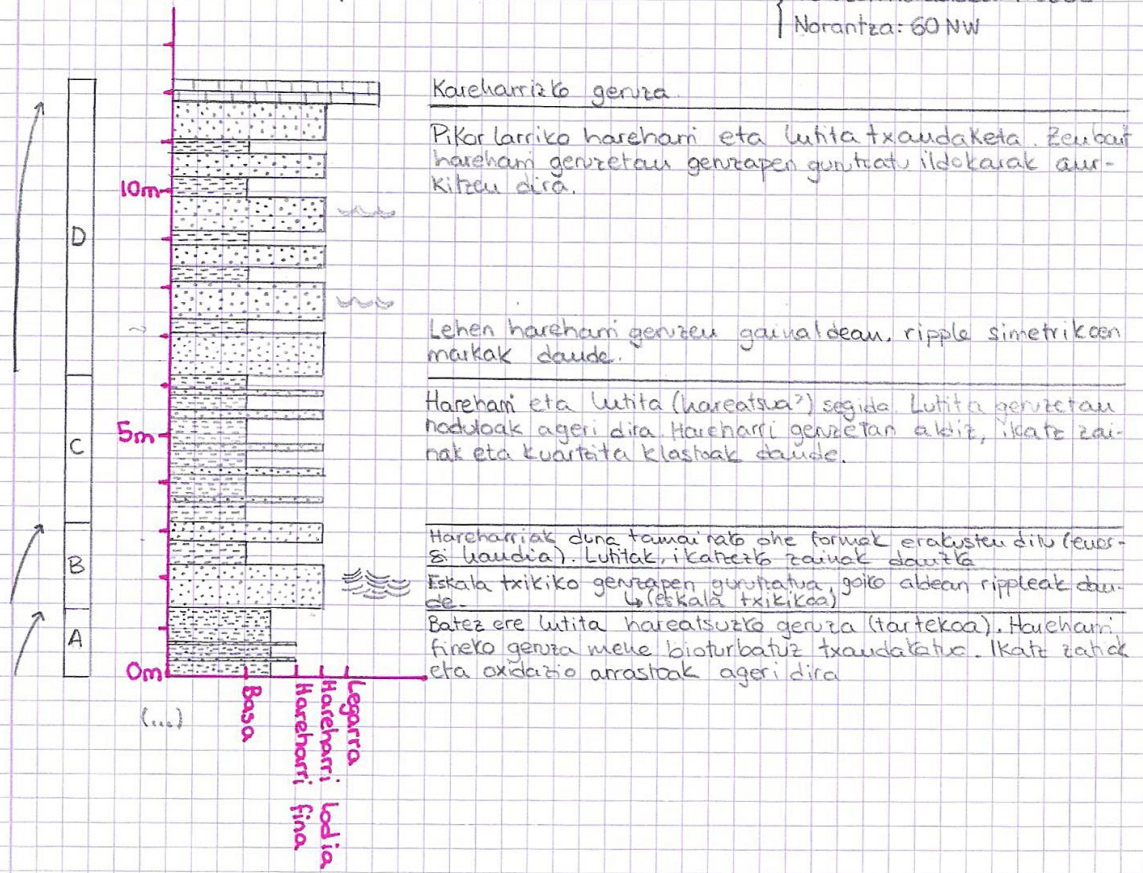 Norantza: 60 NW
Kareharrizko geruza
Pikor larriko hareharri eta lutita txandaketa. Zenbait
hareharri geruzetan geruzapen gurutzatu ildokarak aur-
kitzen dira.
10m
D
Lehen hareharri geruzen gainaldean, ripple simetrikoen
markak daude.
Hareharri eta lutita (hareatsua?) segida. Lutita geruzetan
noduloak ageri dira. Hareharri geruzetan aldiz, ikatz zai-
nak eta kuartzita klastoak daude.
5m
C
Hareharriak duna tamainako ohe formak erakusten ditu (ener-
gi handia). Lutitak, ikatzezko zainak dauzka
B
Eskala txikiko geruzapen gurutzatua, goiko aldean rippleak dau-
de. ↳(eskala txikikoa)
Batez ere lutita hareatsuzko geruza (tartekoa). Hareharri
fineko geruza mehe bioturbatuz txandakatua. Ikatz zatiak
eta oxidazio arrastoak ageri dira
A
0m
(...)
Basa
Hareharri fina
Hareharri lodia
Legarra